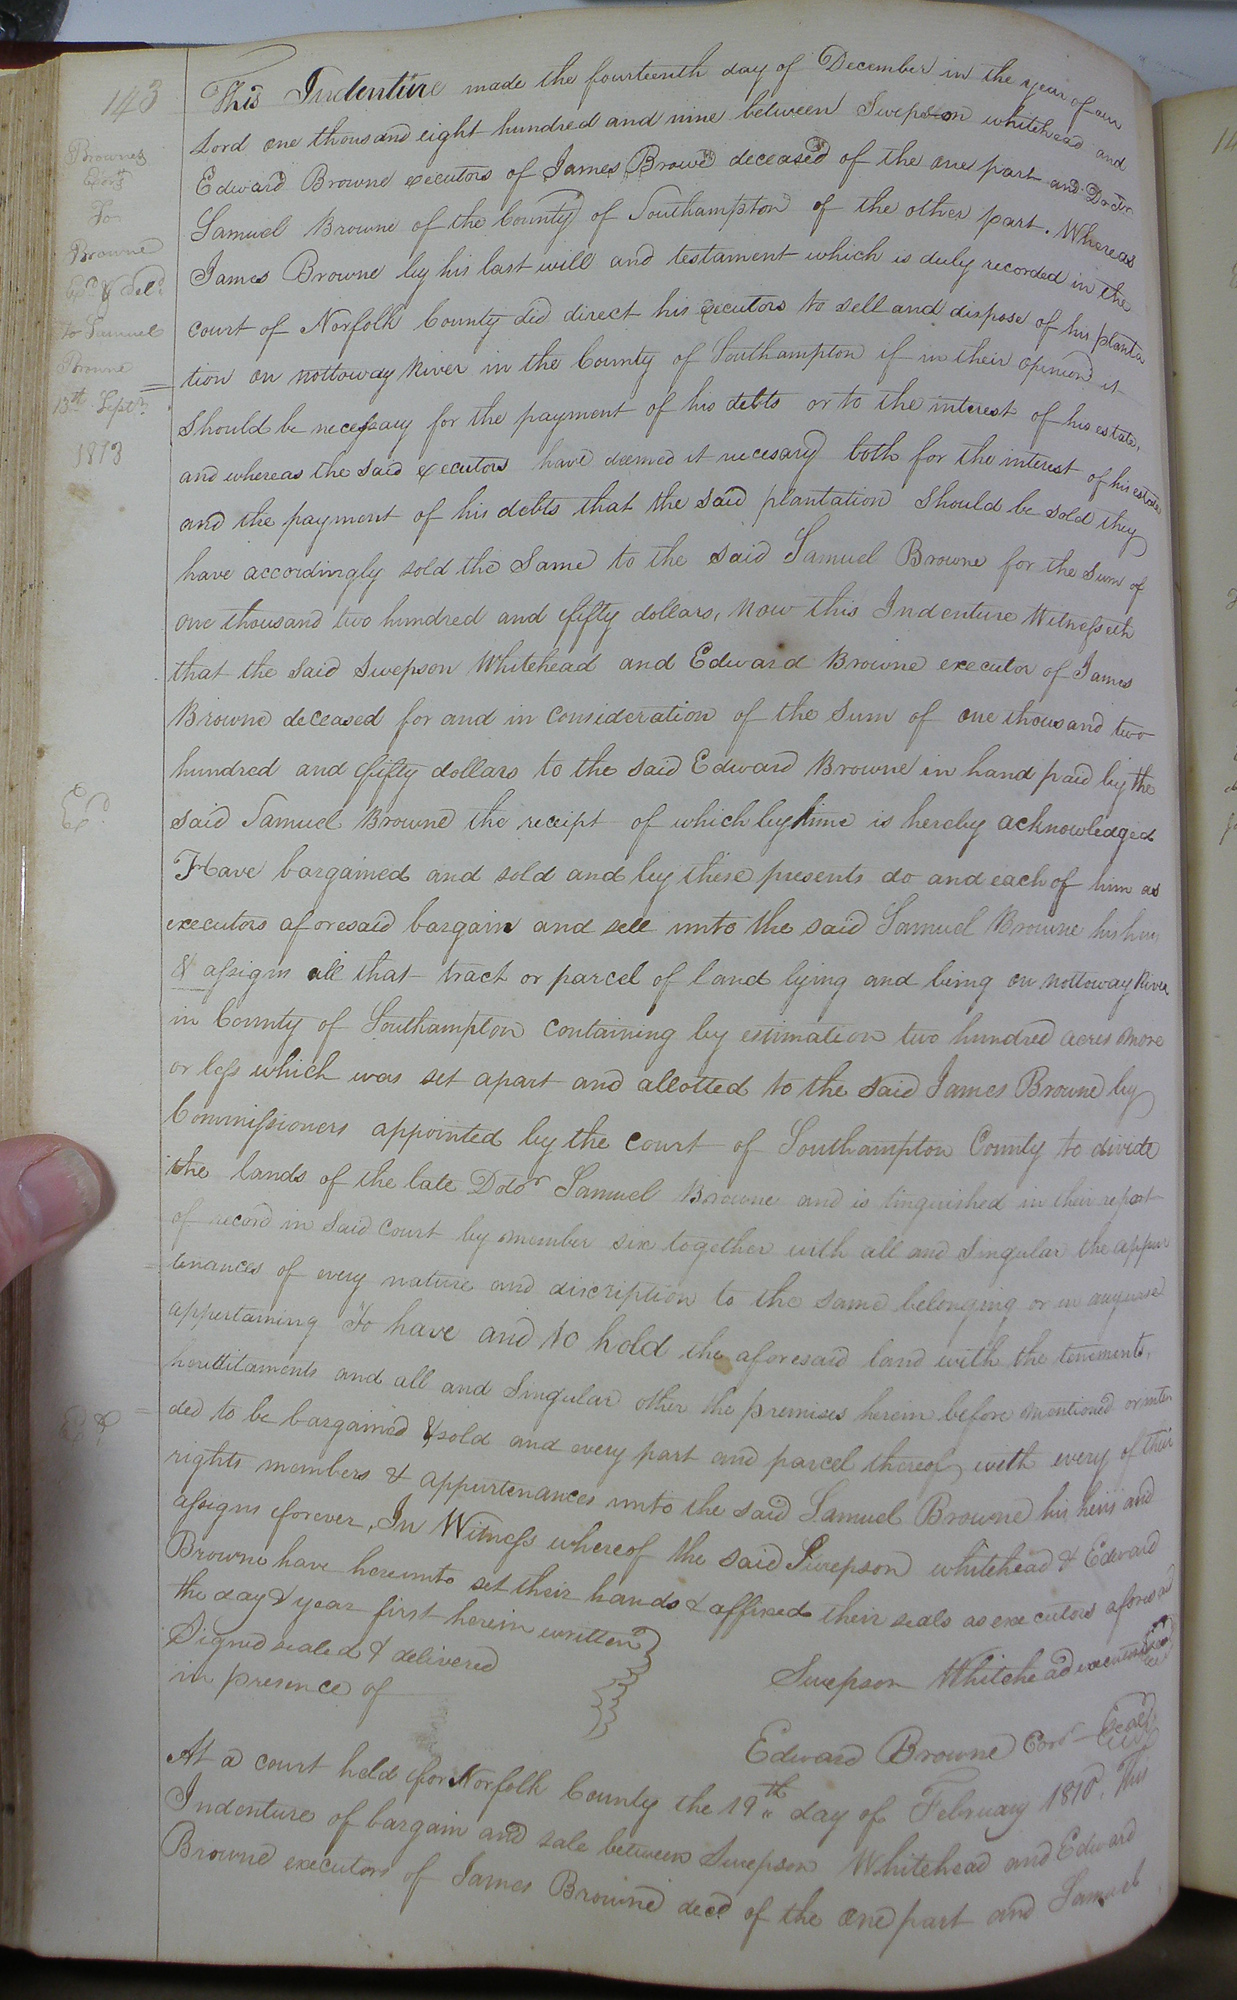 143
Browne
Exors
To
Browne
Exd & Deld
to Samuel
Browne
13th Septr
1813
This Indenture made the fourteenth day of December in the year of our
Lord one thousand eight hundred and nine between Swepson whitehead and
Edward Browne executors of James Browne deceased of the one part and Doctr
Samuel Browne of the County of Southampton of the other part. Whereas
James Browne by his last will and testament which is duly recorded in the
court of Norfolk County did direct his executors to sell and dispose of his planta
tion on nottoway River in the County of Southampton if in their opinion it
should be necessary for the payment of his debts or to the interest of his estate,
and whereas the said executors have deemed it necesary both for the interest of his estate
and the payment of his debts that the said plantation should be sold they
have accordingly sold the same to the said Samuel Browne for the sum of
one thousand two hundred and fifty dollars, now this Indenture Witnesseth
that the said Swepson Whitehead and Edward Browne executor of James
Browne deceased for and in consideration of the sum of one thousand two
hundred and fifty dollars to the said Edward Browne in hand paid by the
Exd
said Samuel Browne the receipt of which by him is hereby acknowledged
Have bargained and sold and by these presents do and each of him as
executors aforesaid bargain and sell unto the said Samuel Browne his heirs
& assigns all that tract or parcel of land lying and being on nottoway River
in County of Southampton containing by estimation two hundred acres more
or less which was set apart and allotted to the said James Browne by
Commissioners appointed by the court of Southampton County to divide
the lands of the late Dotor Samuel Browne and is tinguished in their report
of record in said court by member six together with all and singular the appur
tenances of every nature and discription to the same belonging or in anywise
appertaining To have and to hold the aforesaid land with the tenements,
herditaments and all and singular other the premises herein before mentioned or inten
ded to be bargained & sold and every part and parcel thereof with every of their
rights members & appurtenances unto the said Samuel Browne his heirs and
assigns forever, In Witness whereof the said Swepson whitehead & Edward
Browne have hereunto set their hands & affixed their seals as executors aforesaid
the day & year first herein written
Signed sealed & delivered
in presence of
Swepson Whitehead
Edward Browne Exor Seal
At a court held for Norfolk County the 19th day of February 1810, This
Indenture of bargain and sale between Swepson Whitehead and Edward
Browne executors of James Browne decd of the one part and Samuel